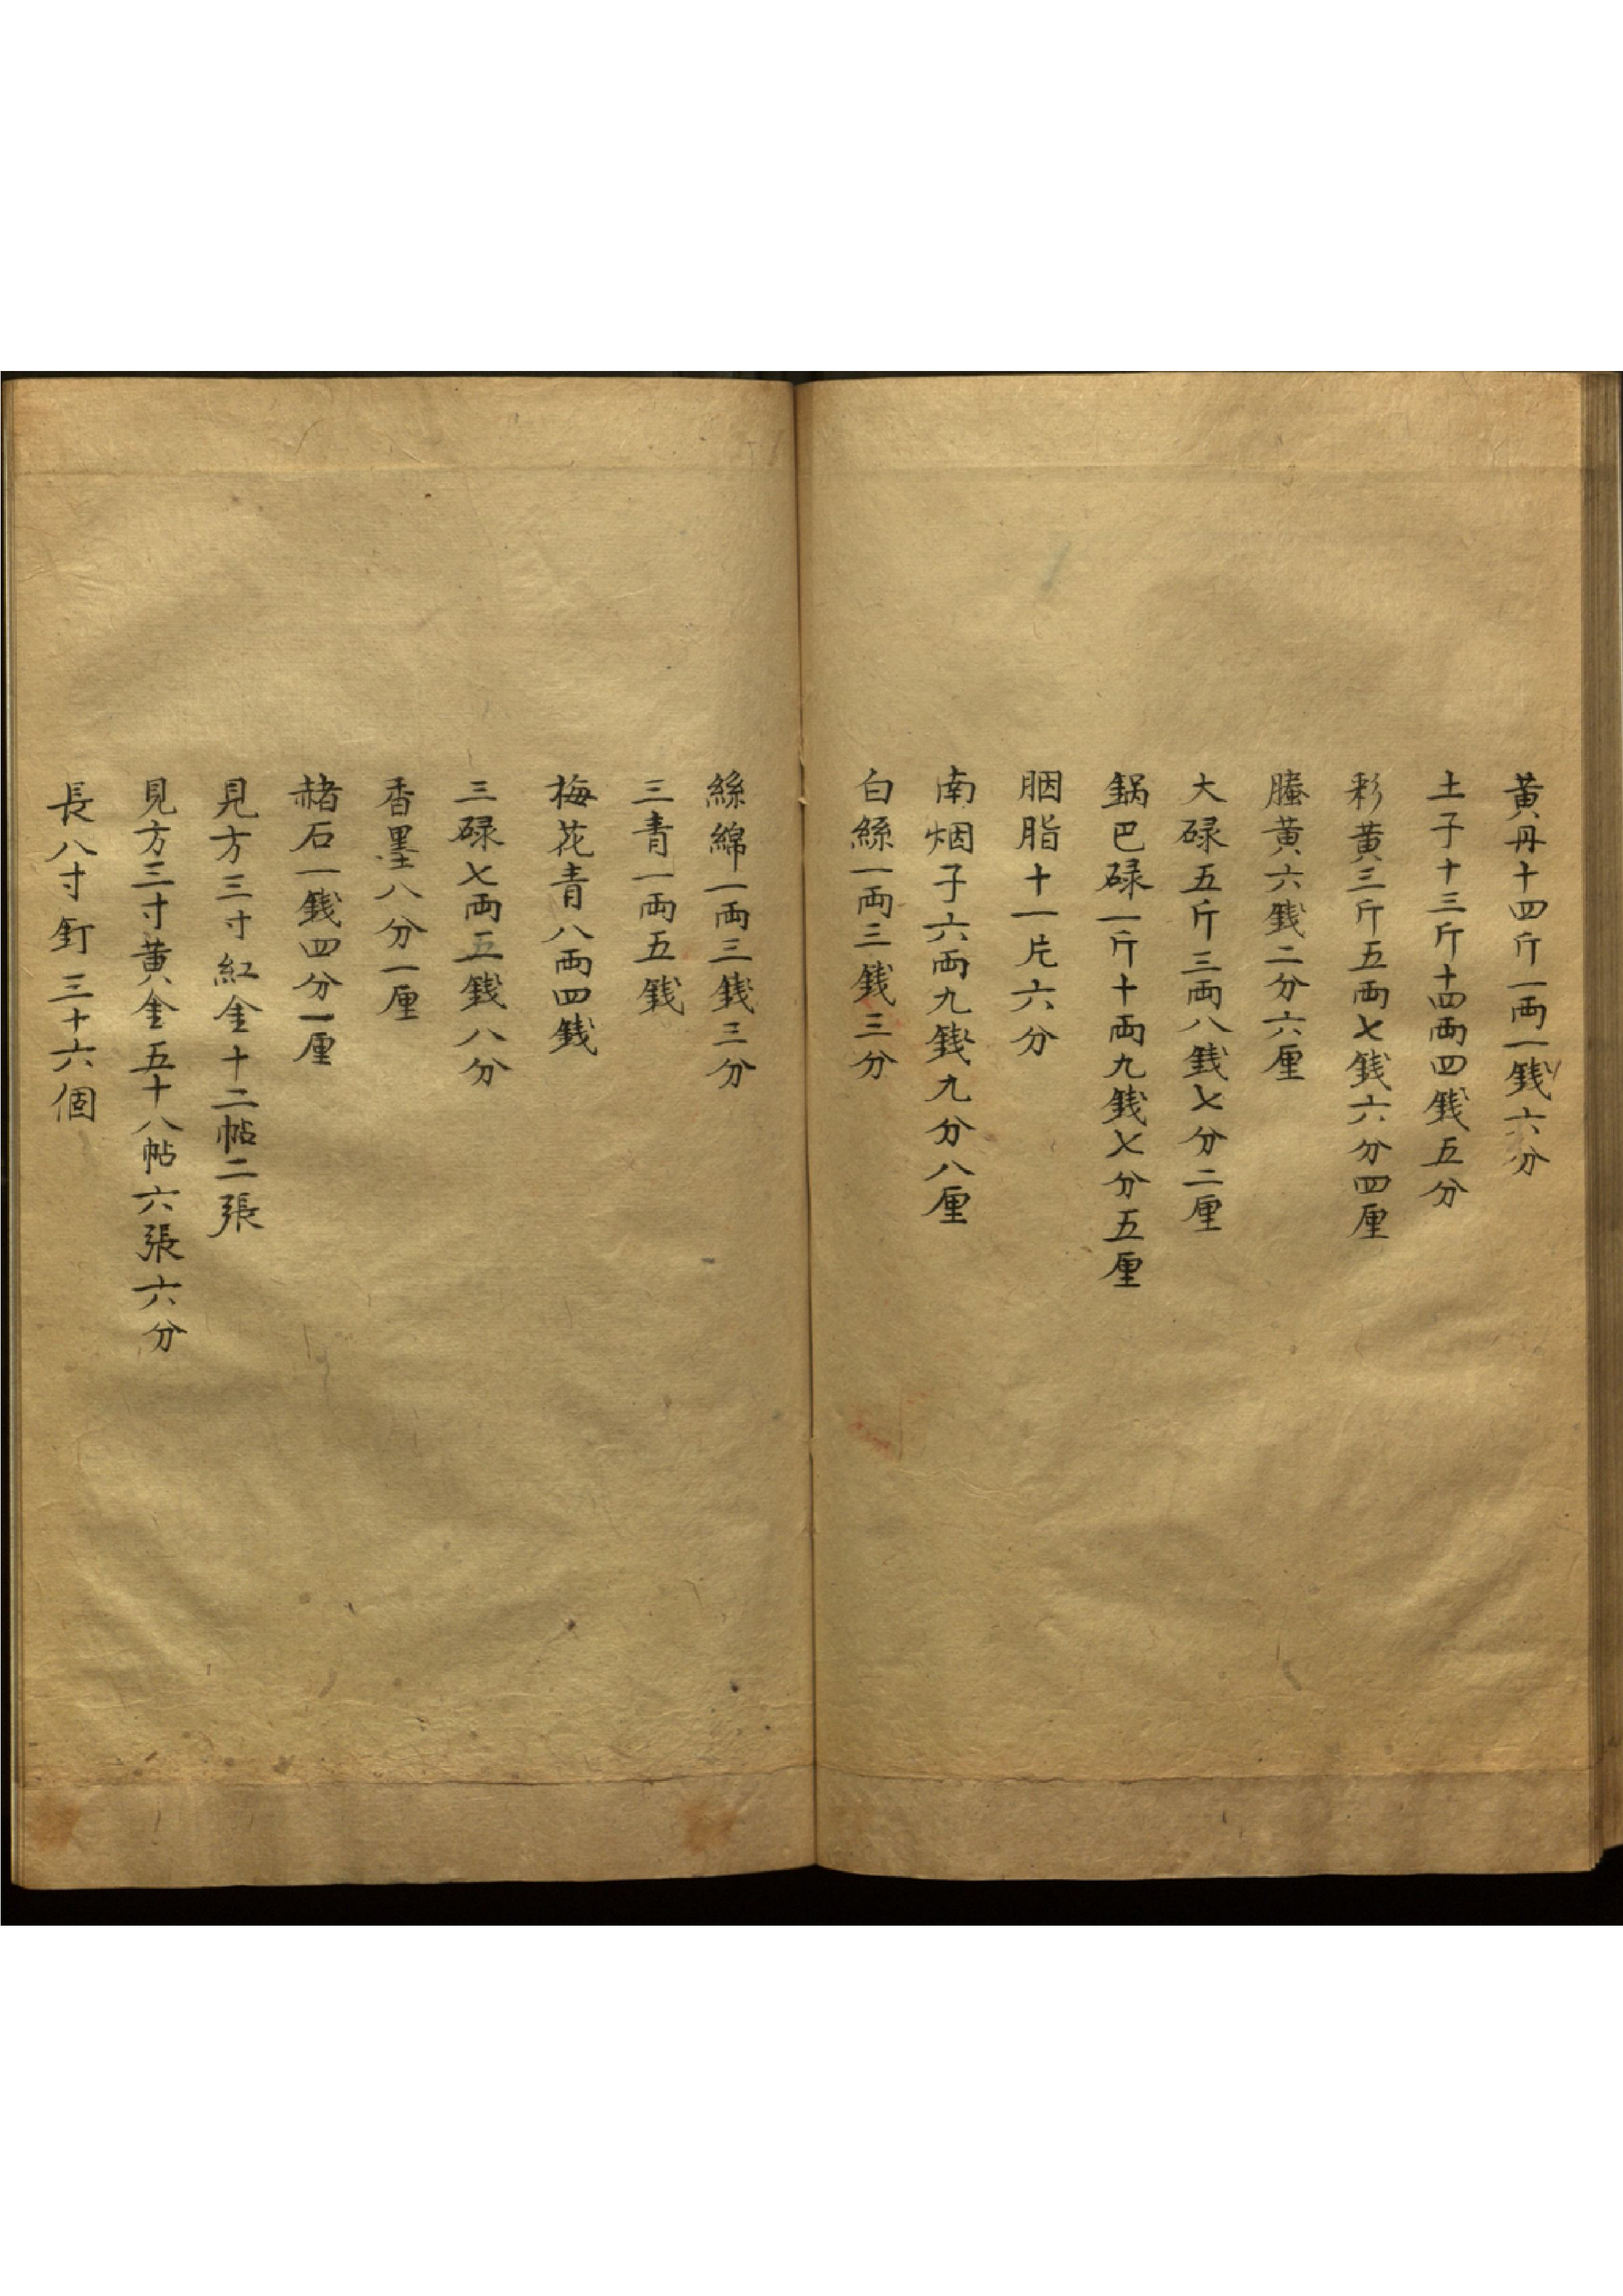 黃丹十四斤一両一銭六分
土子十三斤十四両四銭五分
彩黄三斤五両七銭六分四厘
螣黄六銭二分六厘
大碌五斤三両八銭七分二厘
鍋巴碌一斤十両九銭七分五厘
胭脂十一片六分
南烟子六両九銭九分八厘
白絲一両三銭三分
絲綿一両三銭三分
三青一両五銭
梅花青八両四銭
三碌七両五銭八分
香墨八分一厘
赭石一銭四分一厘
見方三寸紅金十二帖二張
見方三寸黄金五十八帖六張六分
長八寸釘三十六個